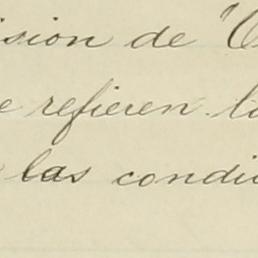 ision de "C
e refieren l
las condi